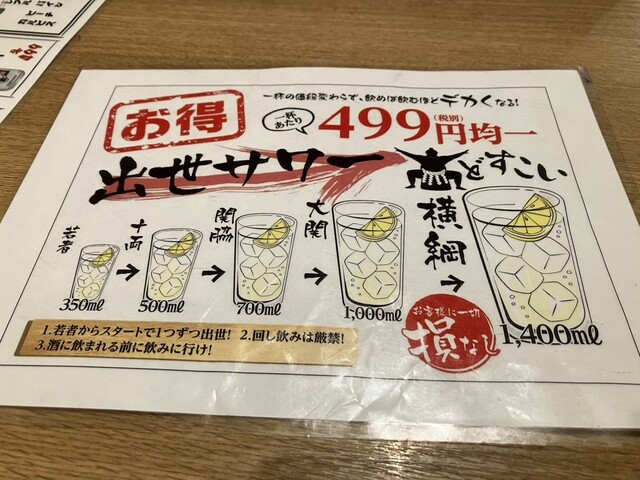 一杯の値段変わらず、飲めば飲むほどデカくなる!
お得
一杯あたり
499円均一
(税別)
出世サワー
どすこい
若者
十両
関脇
大関
横綱
350ml
500ml
700ml
1,000ml
1,400ml
1.若者からスタートで1つずつ出世! 2.回し飲みは厳禁!
3.酒に飲まれる前に飲みに行け!
お客様に一切
損なし